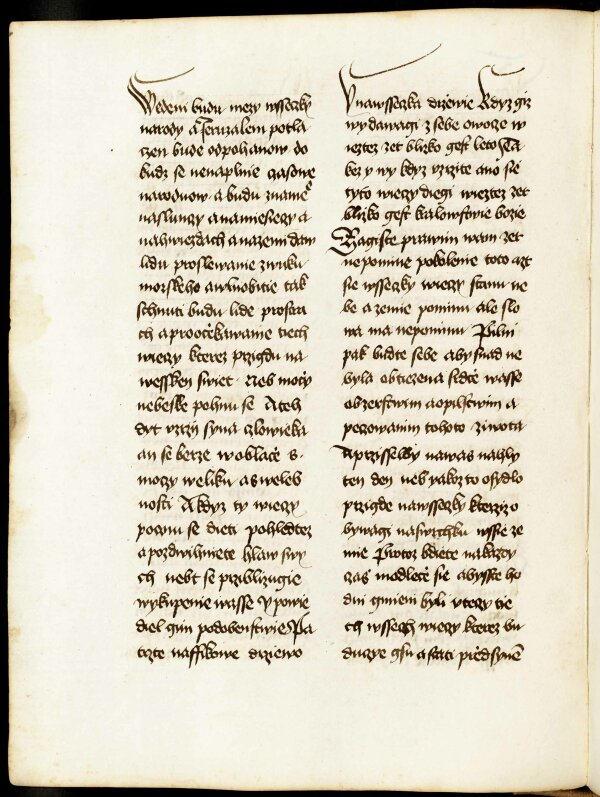 Wedeni budu mezy wsseczky
narody a Jeruzalem potla
czen bude od pohanow do
kudz se nenaplnie czasowe
narodnow a budu znamē
na slunczy a na miesieczy a
na hwiezdach a na zemi daw
lidu pro slewanie zwuku
morskeho a wlnobitie tak
schnuti budu lide pro stra
ch a pro oczekawanie tiech
wieczy kterez przigdu na
wessken swiet Neb moczy
nebeske pohnu se A teh
dyt vzrzy syna czlowieka
an se berze w oblacze s
moczy weliku a s weleb
nosti A kdyz ty wieczy
pocznu se dieti pohledtez
a pozdwihniete hlaw swy
ch nebt se prziblizugie
wykupenie wasse Y powie
diel gim podobenstwie Pa
trzte na ffikowe drziewo
Y na wsseczka drzewie Kdyz giz
wydawagi z sebe owocze w
ieztez zet blizko gest leto Ta
kez y wy kdyz vzrzite ano se
tyto wieczy diegi wieztez zet
blizko gest kralowstwie bozie
Zagiste prawim wam zet
nepomine pokolenie toto azt
sie wsseczky wieczy stanu ne
be a zemie pominu ale slo
wa ma nepominu Pilni
pak budte sebe aby snad ne
byla obtiezena srdcze wasse
obzerstwim a opilstwim a
peczowanim tohoto ziwota
A przissel by na was nahly
ten den neb yakozto osydlo
przigde na wsseczky kterziz o
bywagi na swrchku wssie ze
mie Protoz bdiete na kazdy
czas modlecze sie abysste ho
dni gmieni byli vteczy tie
ch wssech wieczy kterez bu
ducze gsu a stati przed synē